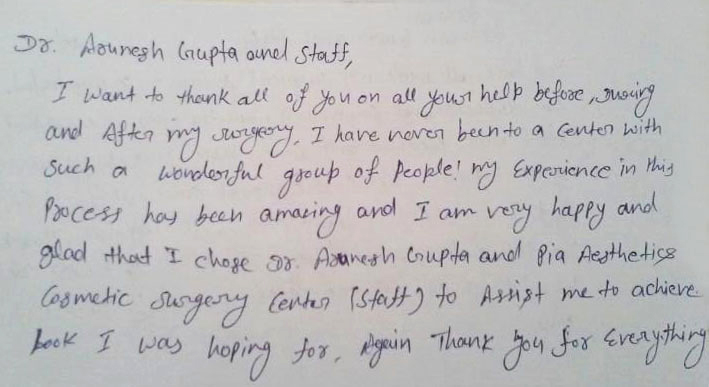 Dr. Arunesh Gupta and Staff,
I want to thank all of you on all your help before, during
and After my surgery. I have never been to a Center with
Such a wonderful group of People! my Experience in this
Process has been amazing and I am very happy and
glad that I chose Dr. Arunesh Gupta and Pia Aesthetics
Cosmetic Surgery Center (Staff) to Assist me to achieve
look I was hoping for, Again Thank you for Everything